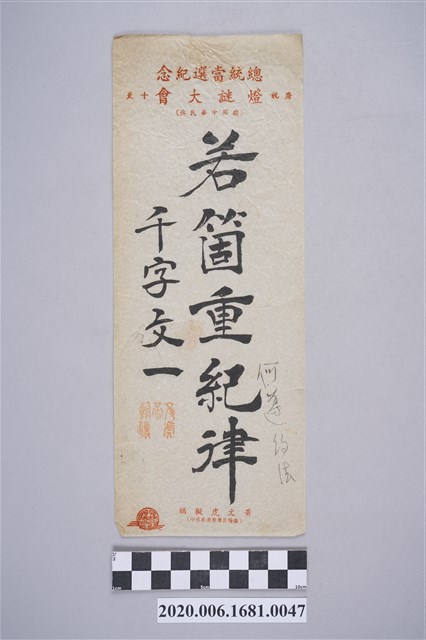 總統當選紀念
慶祝 燈謎大會 十五
若箇重紀律
千字文一
何遵約法
黃文虎擬稿
1cm 5cm 10cm
2020.006.1681.0047